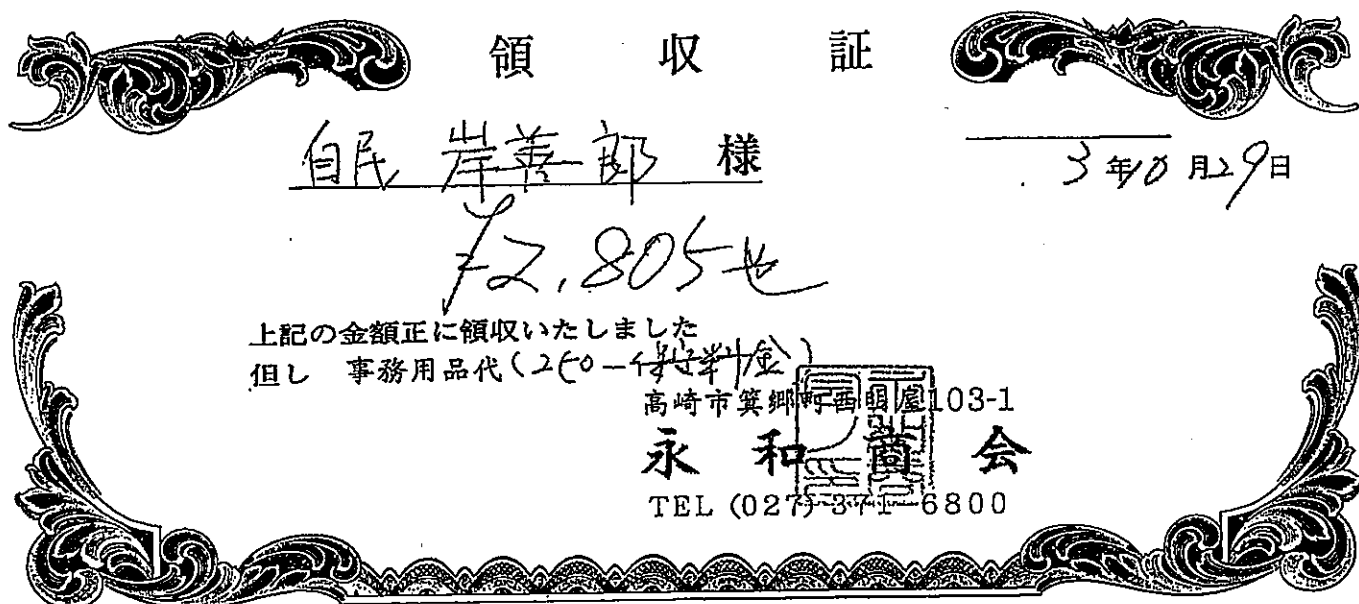 領収証
自民 岸善一郎 様
3年10月29日
¥2,805也
上記の金額正に領収いたしました
但し 事務用品代(コピー保守料金)
高崎市箕郷町西明屋103-1
永和商会
TEL (027)-371-6800